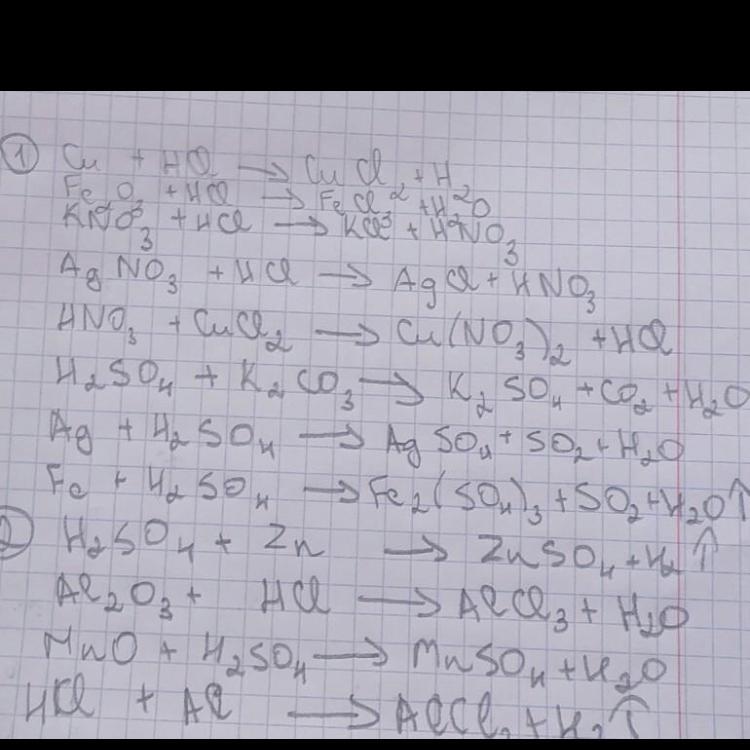 ① Cu + HCl → CuCl₂ + H₂
Fe₂O₃ + HCl → FeCl₃ + H₂O
KNO₃ + HCl → KCl + HNO₃
AgNO₃ + HCl → AgCl + HNO₃
HNO₃ + CuCl₂ → Cu(NO₃)₂ + HCl
H₂SO₄ + K₂CO₃ → K₂SO₄ + CO₂ + H₂O
Ag + H₂SO₄ → AgSO₄ + SO₂ + H₂O
Fe + H₂SO₄ → Fe₂(SO₄)₃ + SO₂ + H₂O↑
② H₂SO₄ + Zn → ZnSO₄ + H₂↑
Al₂O₃ + HCl → AlCl₃ + H₂O
MnO + H₂SO₄ → MnSO₄ + H₂O
HCl + Al → AlCl₃ + H₂↑